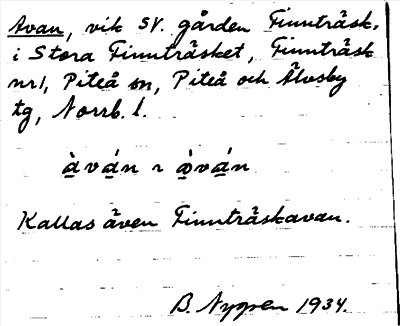 Avan, vik SV. gården Finnträsk,
i Stora Finnträsket, Finnträsk
nr 1, Piteå sn, Piteå och Älvsby
tg, Norrb. l.
à̱vá̱n ~ ò̱vá̱n
Kallas även Finnträskavan.
B. Nyppen 1934.